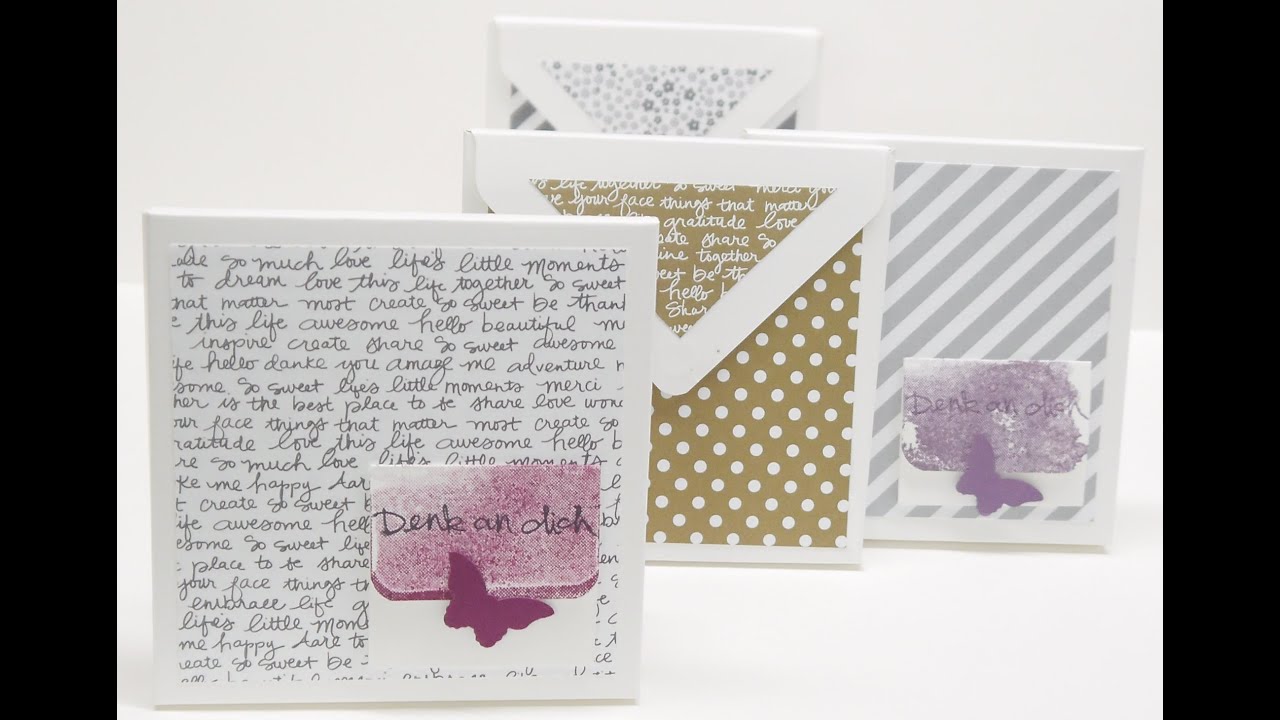 s life together so sweet merci you
ve your face things that matter
gratitude love
ate share so
ine together
sweet be tha
hello b
Shar
swee
so much love life's little moments
to dream love this life together so sweet
that matter most create so sweet be than
e this life awesome hello beautiful m
inspire create share so sweet awesome
ife hello danke you amaze me adventure
some. so sweet life's little moments merci
her is the best place to be share love won
ur face things that matter most create so
ratitude love this life awesome hello be
re so much love life's little moments
ke me happy dare to
create so sweet
ife awesome hell
esome so sweet life
place to be share
your face things th
embrace life g
life's little mom
me happy dare to
create so sweet be t
Denk an dich
Denk an dich